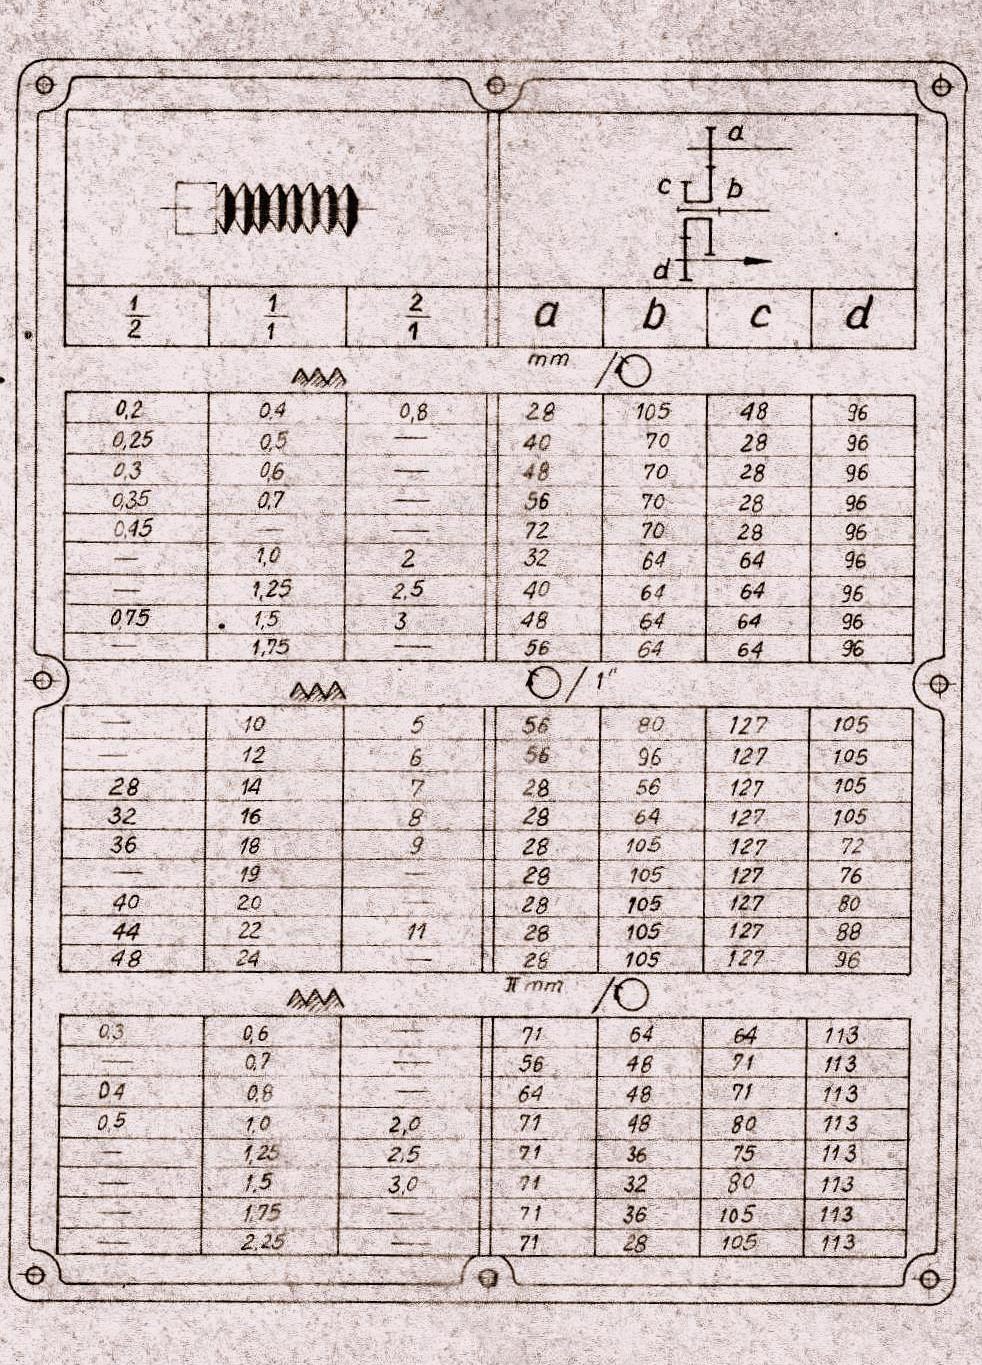 a
c b
d
1/2 1/1 2/1 a b c d
mm /
0,2 0,4 0,8 28 105 48 96
0,25 0,5 — 40 70 28 96
0,3 0,6 — 48 70 28 96
0,35 0,7 — 56 70 28 96
0,45 — — 72 70 28 96
— 1,0 2 32 64 64 96
— 1,25 2,5 40 64 64 96
0,75 1,5 3 48 64 64 96
— 1,75 — 56 64 64 96
/ 1"
— 10 5 56 80 127 105
— 12 6 56 96 127 105
28 14 7 28 56 127 105
32 16 8 28 64 127 105
36 18 9 28 105 127 72
— 19 — 28 105 127 76
40 20 — 28 105 127 80
44 22 11 28 105 127 88
48 24 — 28 105 127 96
π mm /
0,3 0,6 — 71 64 64 113
— 0,7 — 56 48 71 113
0,4 0,8 — 64 48 71 113
0,5 1,0 2,0 71 48 80 113
— 1,25 2,5 71 36 75 113
— 1,5 3,0 71 32 80 113
— 1,75 — 71 36 105 113
— 2,25 — 71 28 105 113